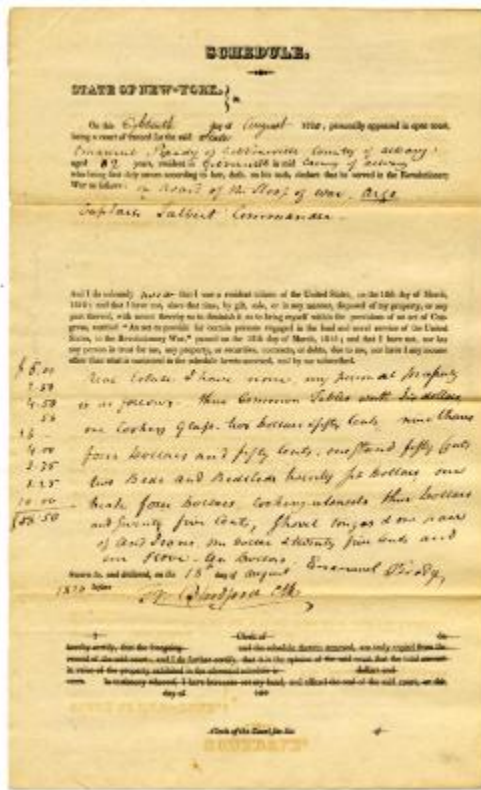 SCHEDULE.
STATE OF NEW-YORK. } ss.
On this Eighteenth day of August 1820, personally appeared in open court,
being a court of record for the said State
Emanuel County of Albany
aged 82 years, resident in in said County of Albany
who being first duly sworn according to law, doth, on his oath, declare that he served in the Revolutionary
War as follows: on board of the Sloop of War Argo
Captain Talbert Commander
And I do solemnly swear that I was a resident citizen of the United States, on the 18th day of March,
1818; and that I have not, since that time, by gift, sale, or in any manner, disposed of my property, or any
part thereof, with intent thereby so to diminish it as to bring myself within the provisions of an act of Con-
gress, entitled "An act to provide for certain persons engaged in the land and naval service of the United
States, in the Revolutionary War," passed on the 18th day of March, 1818; and that I have not, nor has
any person in trust for me, any property, or securities, contracts, or debts, due to me, nor have I any income
other than what is contained in the schedule hereto annexed, and by me subscribed.
Real Estate I have none, my personal property
is as follows three Common Tables worth Six dollars
one Looking Glass two Dollars & fifty Cents nine Chairs
four Dollars and fifty Cents, one Stand fifty Cents
two Beds and Bedsteads twenty Dollars one
four Dollars Cooking utensils three Dollars
and Seventy five Cents, Shovel tongs & one pair
of And Irons one Dollar & twenty five Cents and
one Stove Ten Dollars
4.50
50
4 00
3.75
10 00
Sworn to, and declared, on the 18th day of August Emanuel
1820 before
Clk
I Clerk of do
hereby certify, that the foregoing and the schedule thereto annexed, are truly copied from the
record of the said court; and I do further certify, that it is the opinion of the said court that the total amount
in value of the property exhibited in the aforesaid schedule is dollars and
cents. In testimony whereof, I have hereunto set my hand, and affixed the seal of the said court, on this
day of 182
Clerk of the Court for the